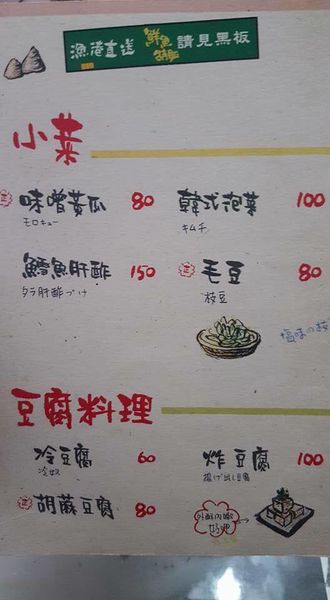 漁港直送 鮮魚 請見黑板
小菜
味噌黃瓜 80
モロキュー
韓式泡菜 100
キムチ
鱈魚肝酢 150
タラ肝酢づけ
毛豆 80
枝豆
塩味の枝
豆腐料理
冷豆腐 60
冷奴
炸豆腐 100
揚げ出し豆腐
胡蔴豆腐 80
外酥內嫩
好哩